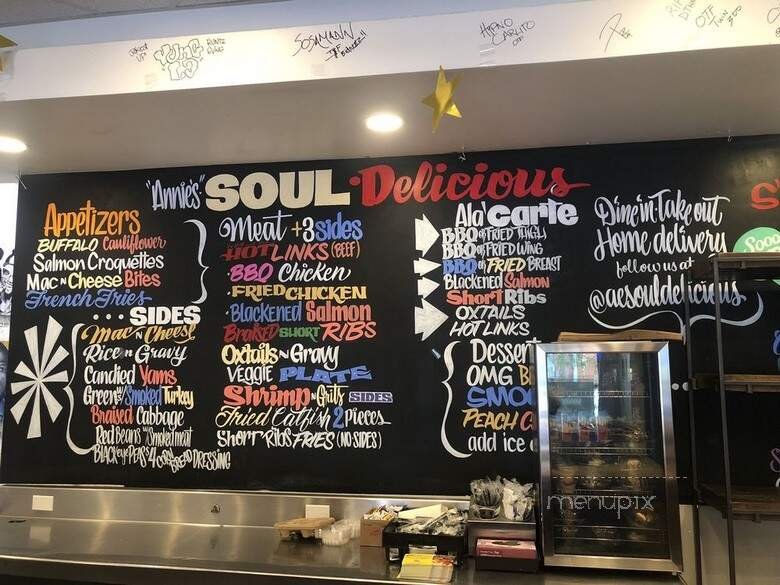 YUNG
LJ
HIPNO
CARLITO
OTF
OTF
TWIN
"Annie's" SOUL Delicious
Appetizers
BUFFALO Cauliflower
Salmon Croquettes
Mac N Cheese Bites
French Fries
SIDES
Mac N Cheese
Rice N Gravy
Candied Yams
Greens w/Smoked Turkey
Braised Cabbage
Red Beans w/Smoked meat
BLACK eye PEAS
DRESSING
Meat + 3 sides
HOT LINKS (BEEF)
BBQ Chicken
FRIED CHICKEN
Blackened Salmon
Braised SHORT RIBS
Oxtails N Gravy
VEGGIE PLATE
Shrimp N Grits SIDES
Fried Catfish 2 pieces
Short Ribs FRIES (NO SIDES)
Ala Carte
BBQ or FRIED THIGH
BBQ or FRIED WING
BBQ or FRIED BREAST
Blackened Salmon
Short Ribs
OXTAILS
HOT LINKS
Dessert
OMG
PEACH
add ice
Dine in Take out
Home delivery
follow us at
@aesouldelicious
menupix